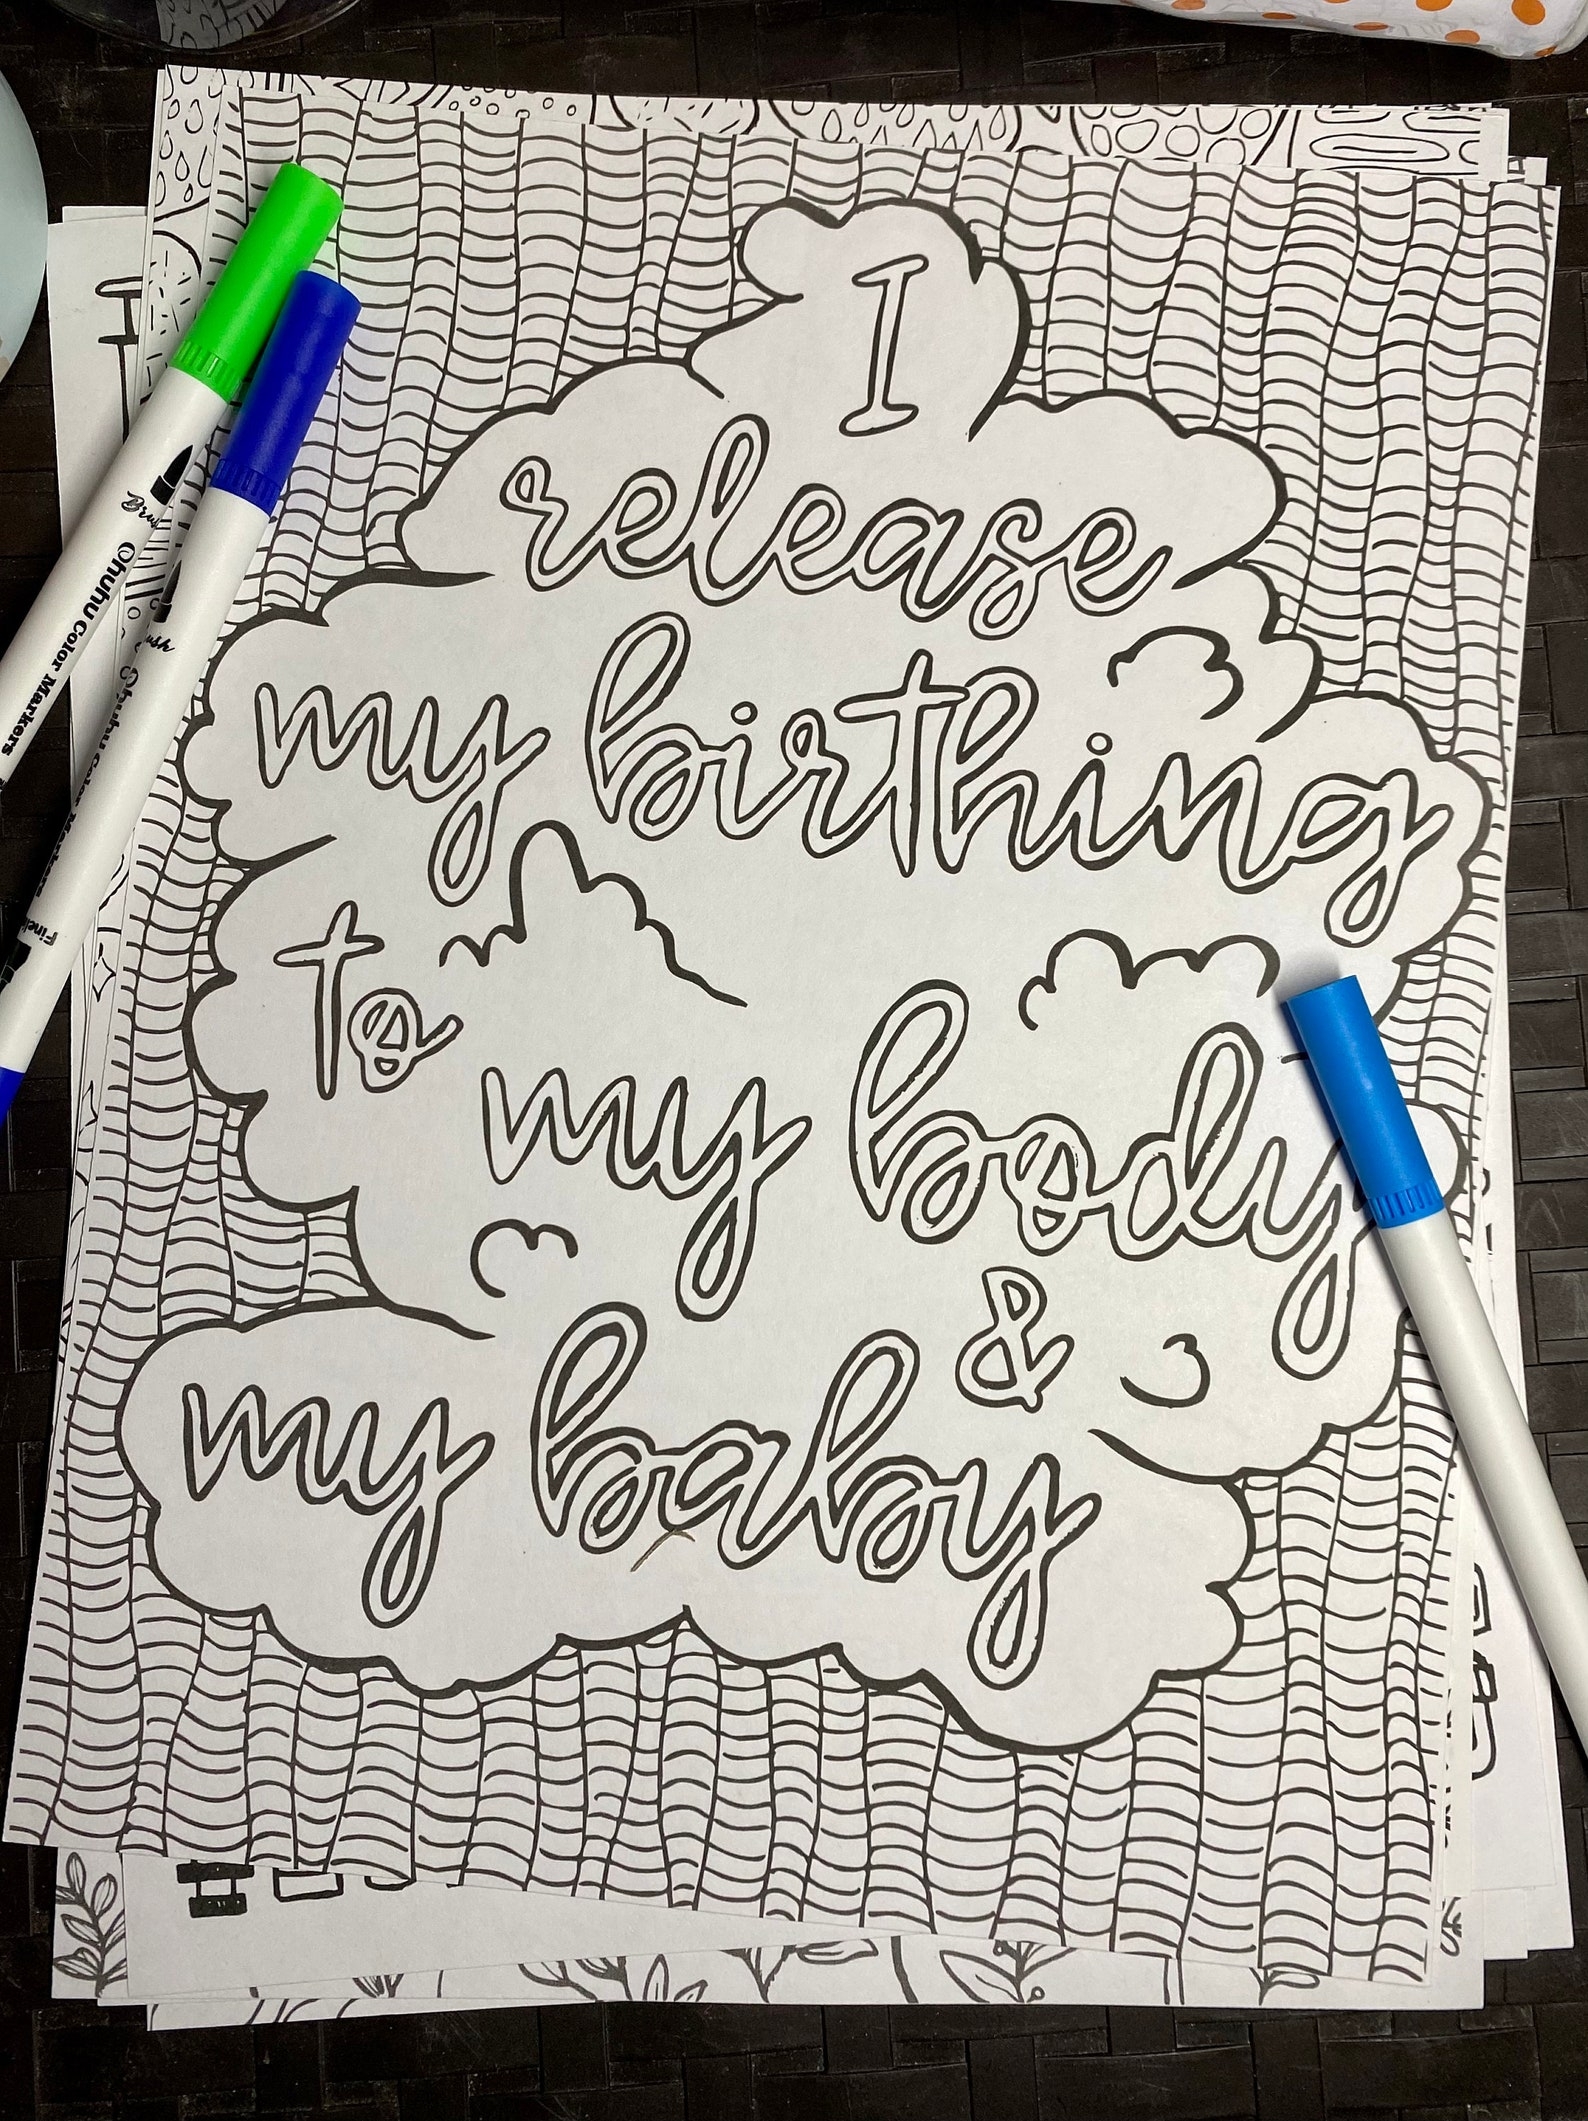 I
release
my birthing
to my body
&
my baby
Brush
Ohuhu Color Markers
Ohuhu Color Markers
I